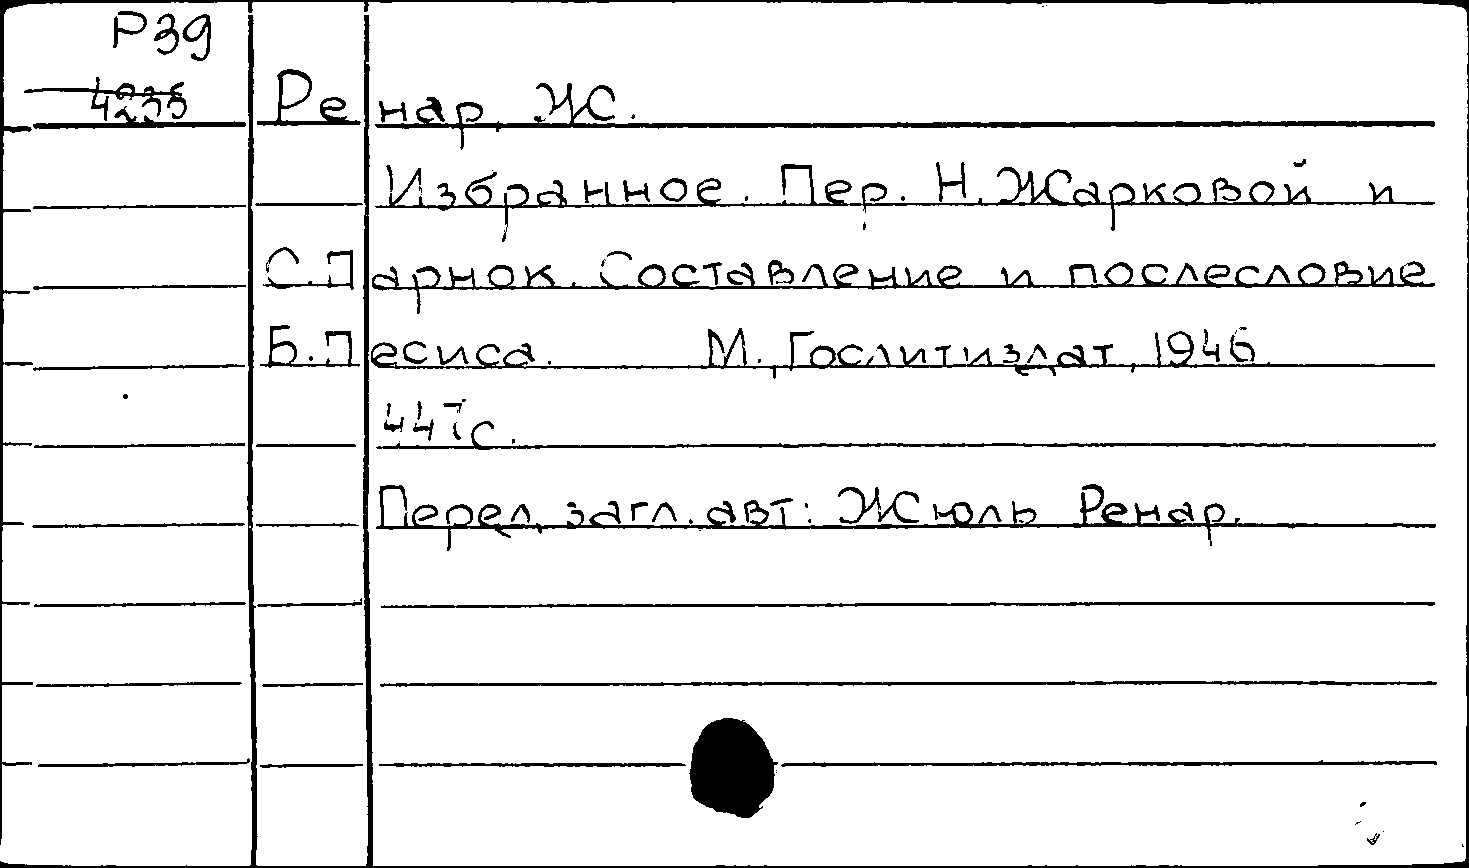 Р39
4235
Ренар, Ж.
Избранное. Пер. Н. Жарковой и
С. Парнок. Составление и послесловие
Б. Песиса. М., Гослитиздат, 1946
447с.
Перед загл. авт: Жюль Ренар.